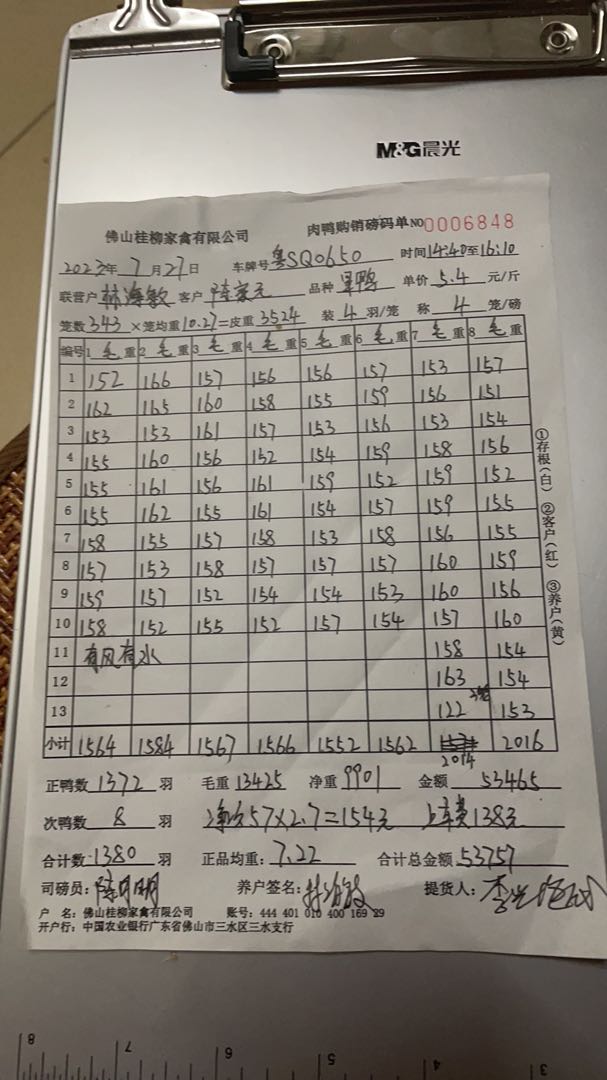 M&G晨光
佛山桂柳家禽有限公司 肉鸭购销磅码单NO0006848
2023年7月27日 车牌号粤SQ0650 时间14:40至16:10
联营户林海敏 客户 品种 单价5.4元/斤
笼数343×笼均重10.27=皮重3524 装4羽/笼 称4笼/磅
编号 1毛重 2毛重 3毛重 4毛重 5毛重 6毛重 7毛重 8毛重
1 152 166 157 156 156 157 153 157
2 162 165 160 158 155 159 156 151
3 153 153 161 157 153 156 153 154
4 155 160 156 152 154 159 158 156
5 155 161 156 161 159 152 159 152
6 155 162 155 161 154 157 159 155
7 158 155 157 158 153 158 156 155
8 157 153 158 157 157 157 160 159
9 159 157 152 154 154 153 160 156
10 158 152 155 152 157 154 157 160
11 有风有水 158 154
12 163 154
13 122 153
小计 1564 1584 1567 1566 1552 1562 2014 2016
正鸭数1372羽 毛重13425 净重9901 金额53465
次鸭数8羽 57×2.7=154元 上车费138元
合计数1380羽 正品均重:7.22 合计总金额53757
司磅员: 养户签名: 提货人:
户 名:佛山桂柳家禽有限公司 账号:444 401 010 400 169 29
开户行:中国农业银行广东省佛山市三水区三水支行
①存根(白) ②客户(红) ③养户(黄)
8 7 6 5 4 3